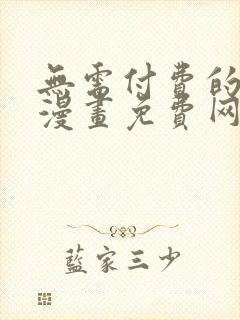 無需付費的
漫畫免費网
藍家三少